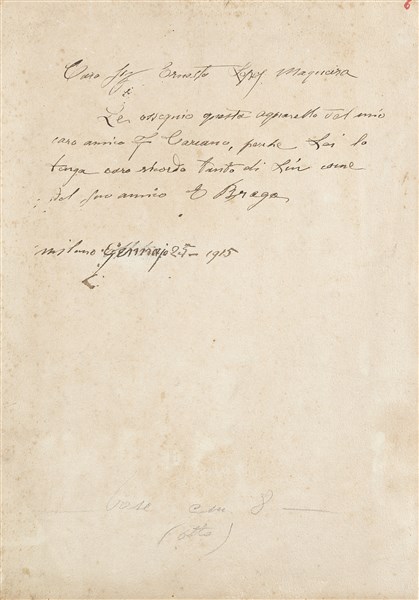 6
Caro Sig Ernesto Lopez Maquiera
Le ossequio questo aquarello del mio
caro amico F Carcano, perche Lei lo
tenga caro ricordo tanto di Lui come
del suo amico E Braga
Milano 25 - 1915
base cm 8
(otto)